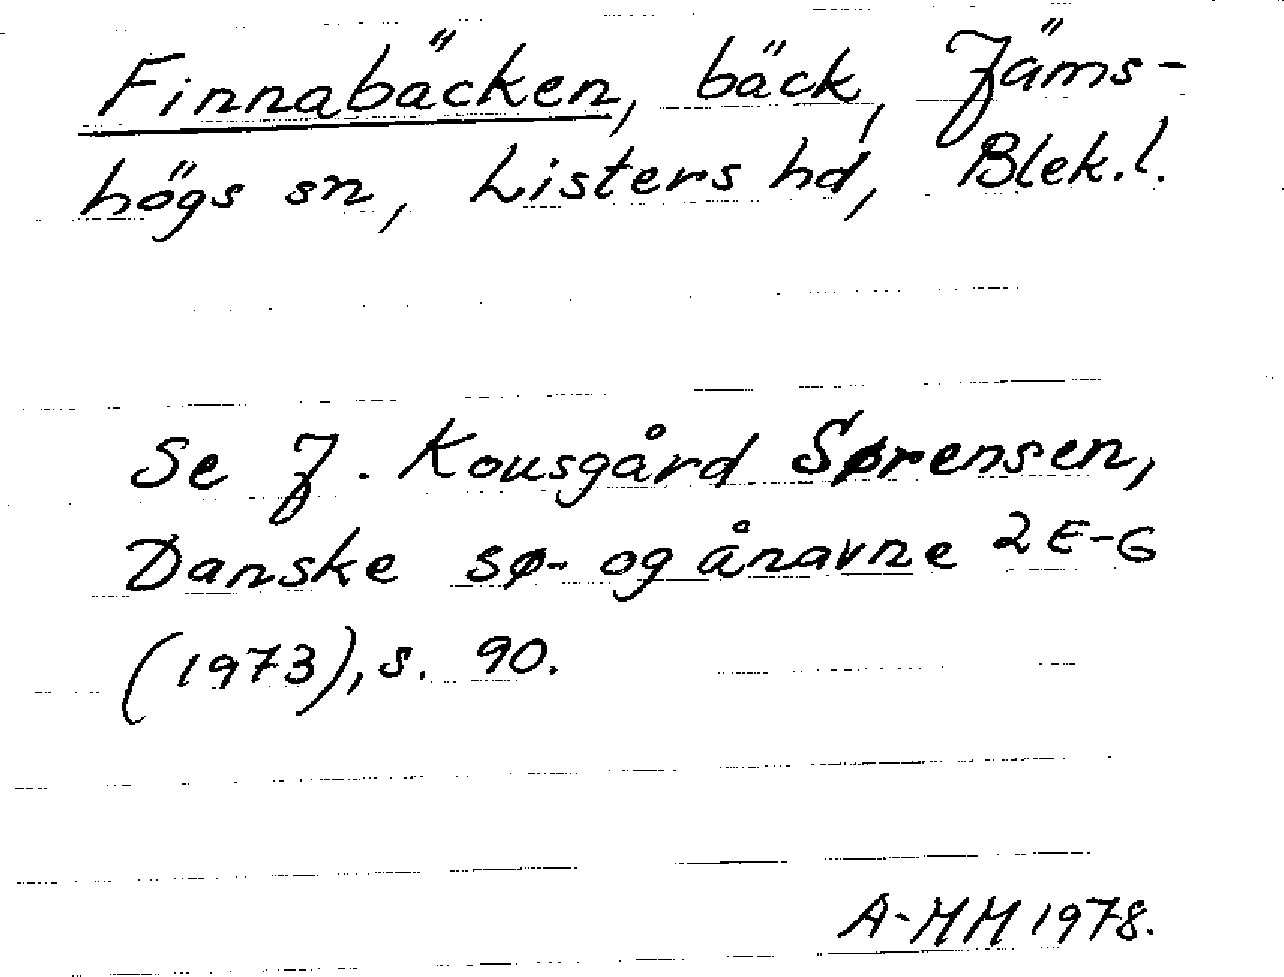 Finnabäcken, bäck, Jäms-
högs sn, Listers hd, Blek.l.
Se J. Kousgård Sørensen,
Danske sø- og ånavne 2 E-G
(1973), s. 90.
A-MM 1978.